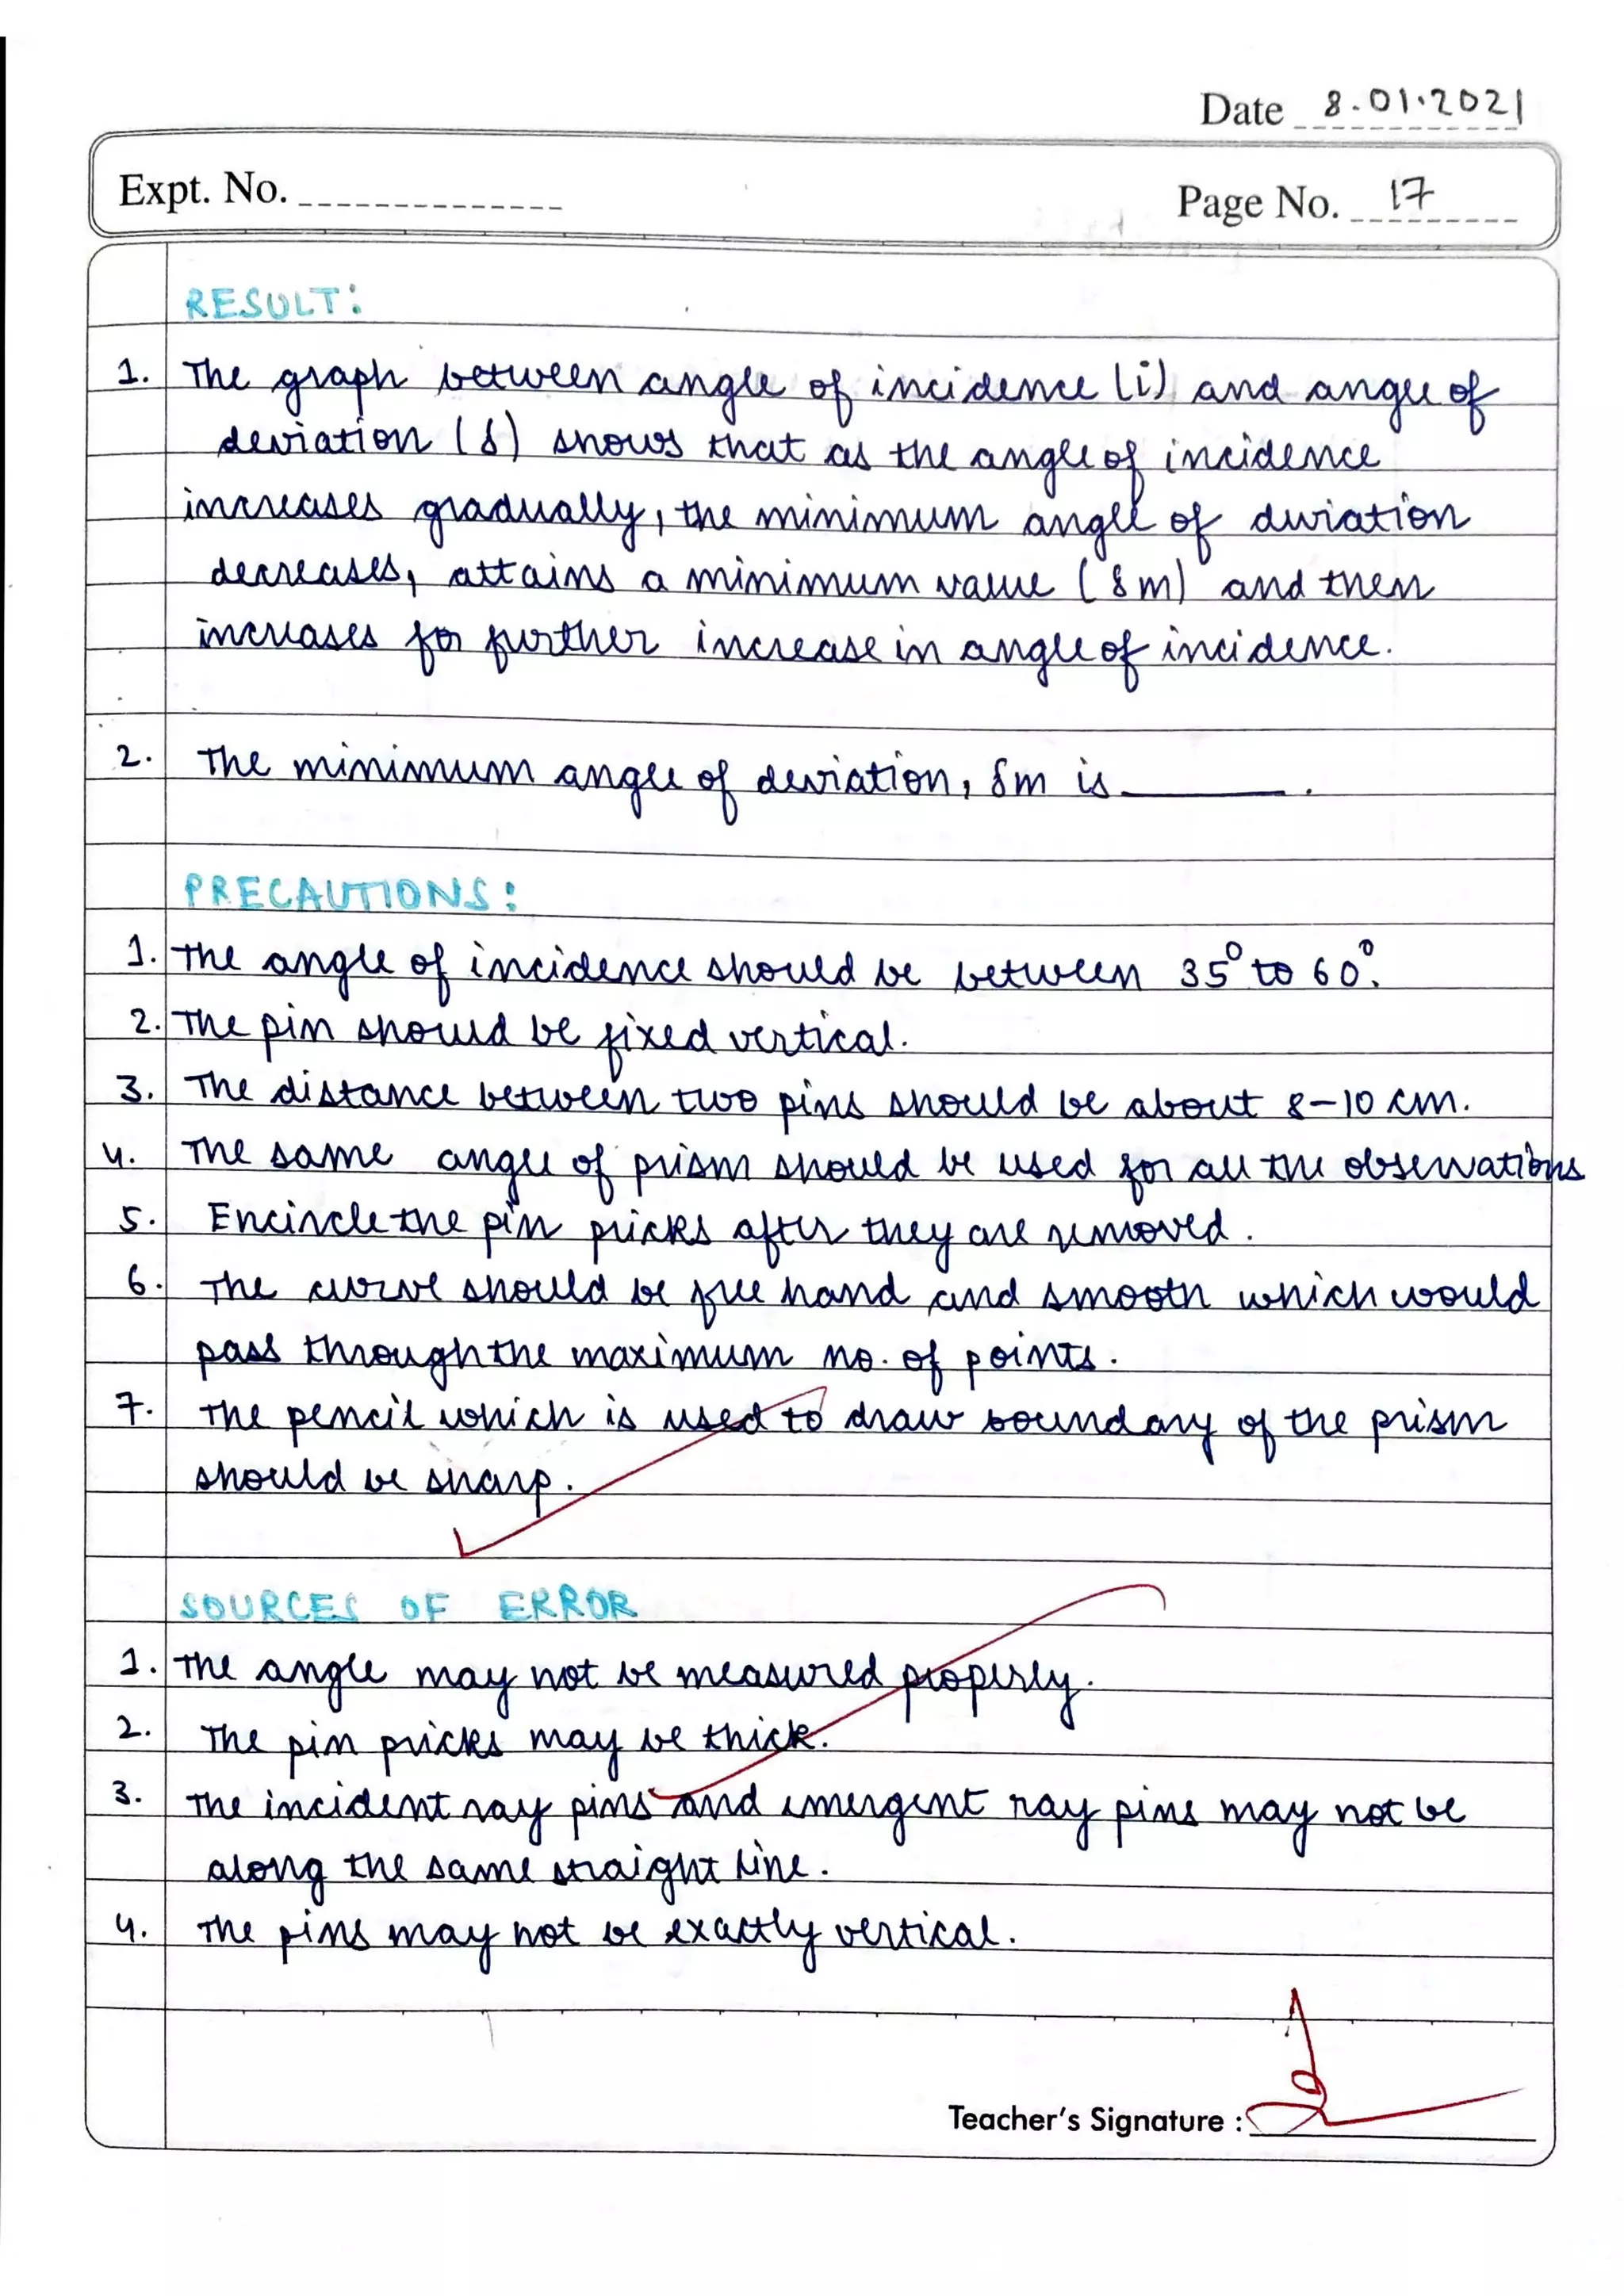 Date 8.01.2021
Expt. No.
Page No. 17
RESULT:
1. The graph between angle of incidence (i) and angle of
deviation (δ) shows that as the angle of incidence
increases gradually, the minimum angle of deviation
decreases, attains a minimum value (δm) and then
increases for further increase in angle of incidence.
2. The minimum angle of deviation, δm is ______.
PRECAUTIONS:
1. The angle of incidence should be between 35° to 60°.
2. The pin should be fixed vertical.
3. The distance between two pins should be about 8-10 cm.
4. The same angle of prism should be used for all the observations
5. Encircle the pin pricks after they are removed.
6. The curve should be free hand and smooth which would
pass through the maximum no. of points.
7. The pencil which is used to draw boundary of the prism
should be sharp.
SOURCES OF ERROR
1. The angle may not be measured properly.
2. The pin pricks may be thick.
3. The incident ray pins and emergent ray pins may not be
along the same straight line.
4. The pins may not be exactly vertical.
Teacher's Signature :